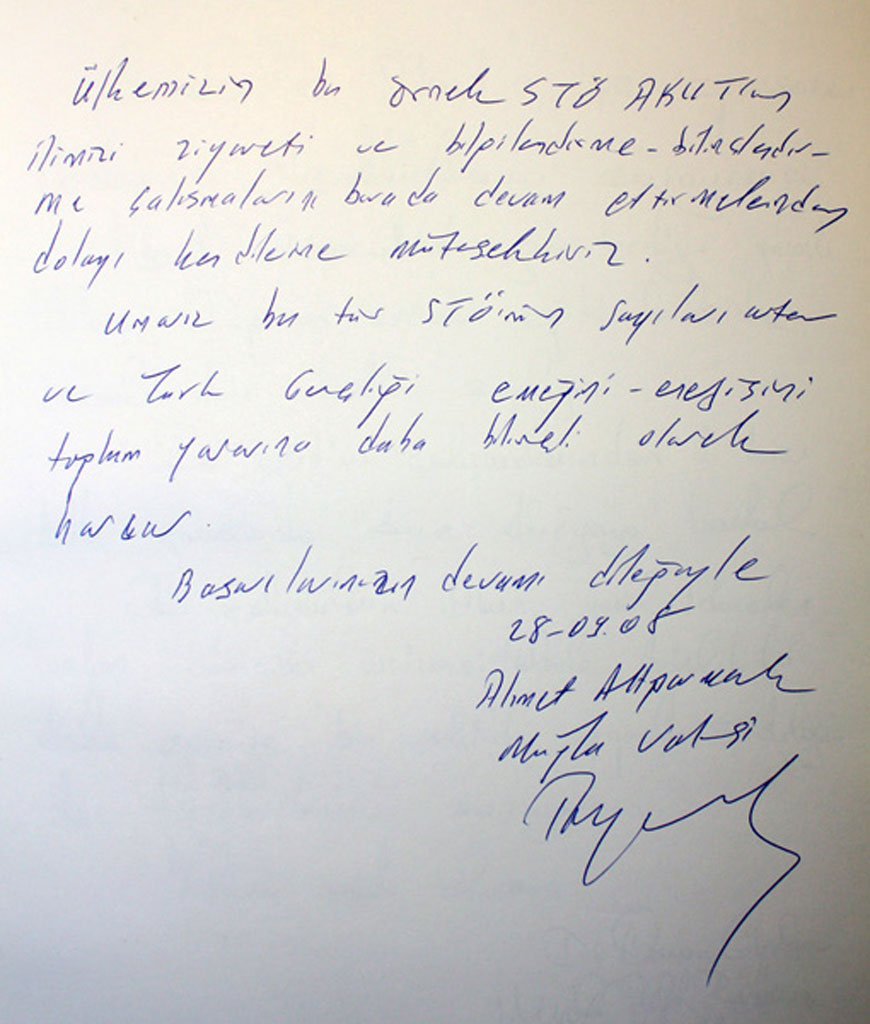 Ülkemizin bu örnek STÖ AKUT'un
ilimizi ziyareti ve bilgilendirme-bilinçlendir-
me çalışmalarını burada devam ettirmelerinden
dolayı kendilerine müteşekkiriz.
Umarız bu tür STÖ'nün sayıları artar
ve Türk Gençliği emeğini-enerjisini
toplum yararına daha bilinçli olarak
harcar.
Başarılarınızın devamı dileğiyle
28-09.08
Ahmet Altıparmak
Muğla Valisi